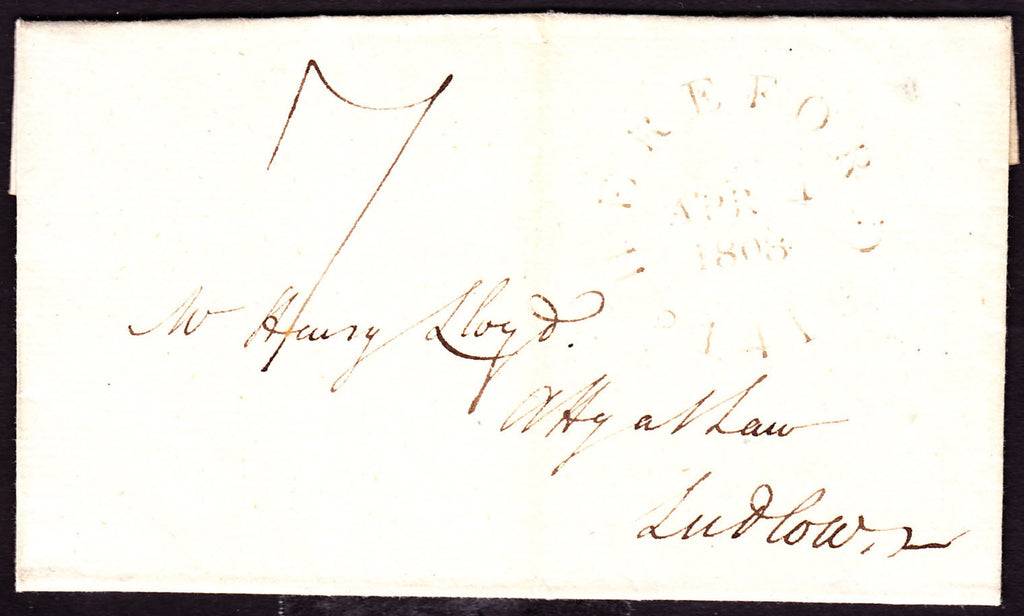 7
HEREFORD
APR 4
1803
141
Mr Henry Lloyd.
Atty at Law
Ludlow.